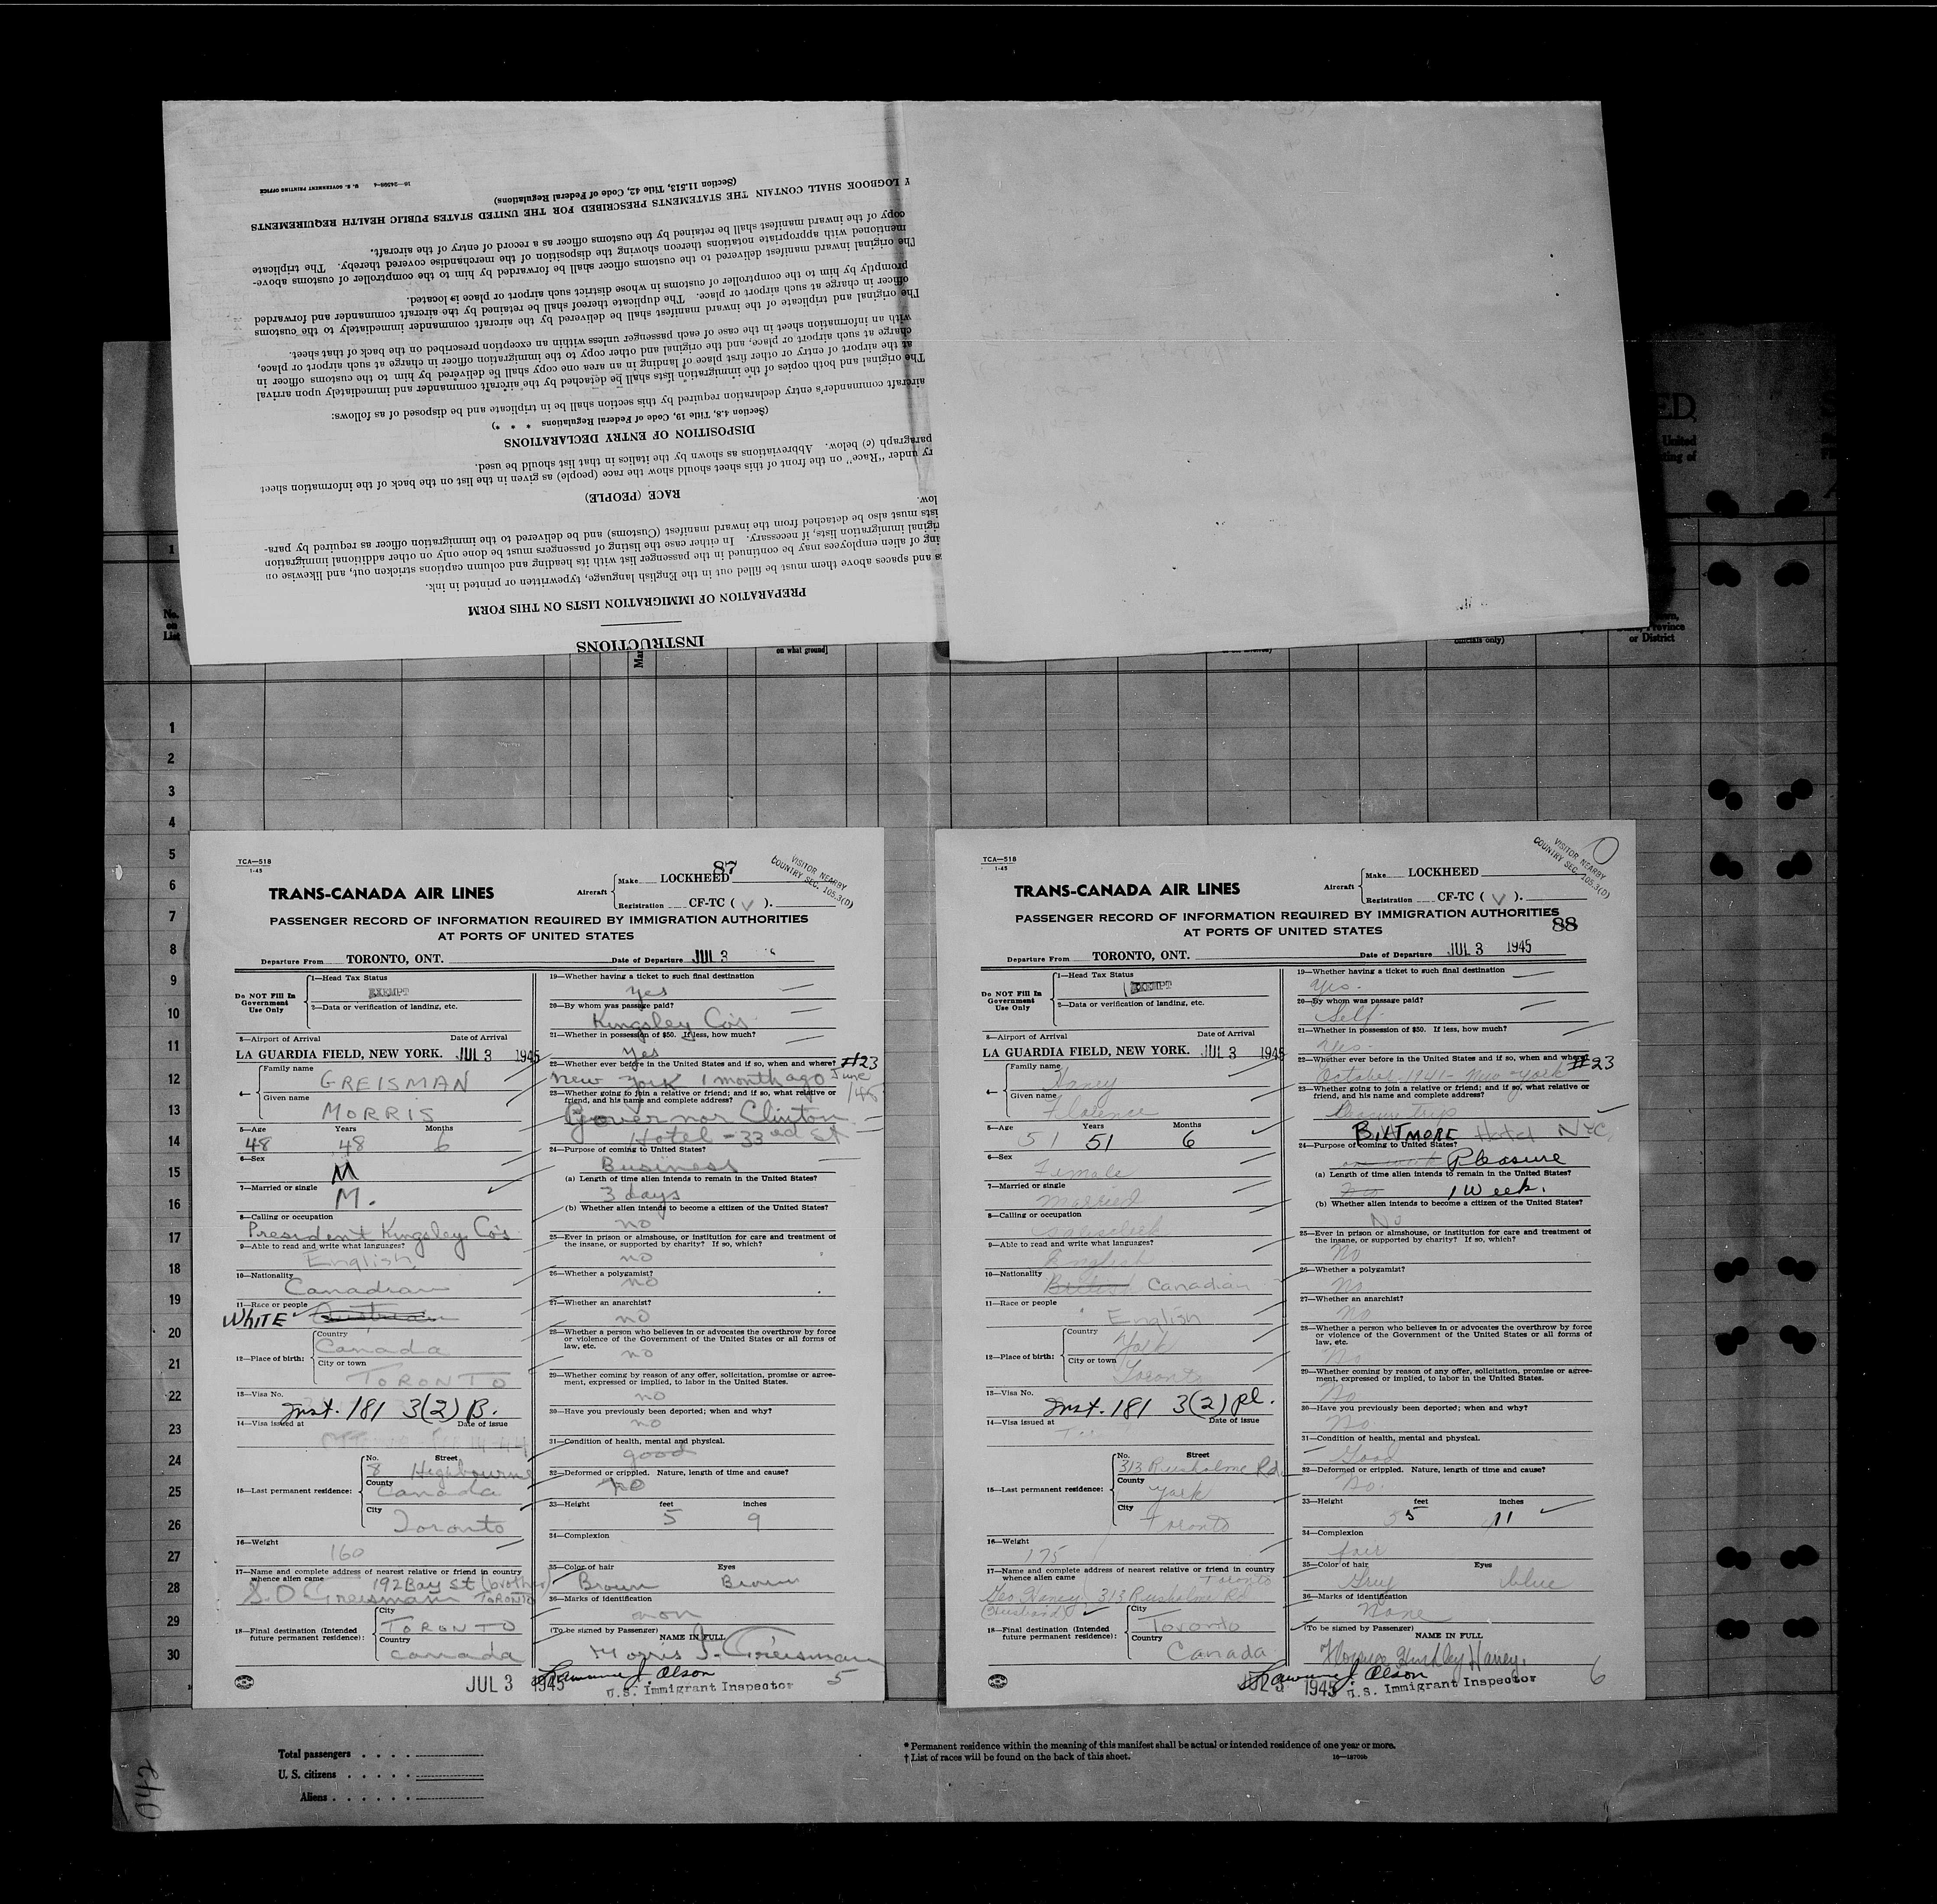 INSTRUCTIONS
PREPARATION OF IMMIGRATION LISTS ON THIS FORM
s and spaces above them must be filled out in the English language, typewritten or printed in ink.
ing of alien employees may be continued in the passenger list with its heading and column captions stricken out, and likewise on
riginal immigration lists, if necessary. In either case the listing of passengers must be done only on other additional immigration
ists must also be detached from the inward manifest (Customs) and be delivered to the immigration officer as required by para-
low.
RACE (PEOPLE)
ry under "Race" on the front of this sheet should show the race (people) as given in the list on the back of the information sheet
paragraph (c) below. Abbreviations as shown by the italics in that list should be used.
DISPOSITION OF ENTRY DECLARATIONS
(Section 4.8, Title 19, Code of Federal Regulations * * *)
aircraft commander's entry declaration required by this section shall be in triplicate and be disposed of as follows:
The original and both copies of the immigration lists shall be detached by the aircraft commander and immediately upon arrival
at the airport of entry or other first place of landing in an area one copy shall be delivered by him to the customs officer in
charge at such airport or place, and the original and other copy to the immigration officer in charge at such airport or place,
with an information sheet in the case of each passenger unless within an exception prescribed on the back of that sheet.
The original and triplicate of the inward manifest shall be delivered by the aircraft commander immediately to the customs
officer in charge at such airport or place. The duplicate thereof shall be retained by the aircraft commander and forwarded
promptly by him to the comptroller of customs in whose district such airport or place is located.
The original inward manifest delivered to the customs officer shall be forwarded by him to the comptroller of customs above-
mentioned with appropriate notations thereon showing the disposition of the merchandise covered thereby. The triplicate
copy of the inward manifest shall be retained by the customs officer as a record of entry of the aircraft.
Y LOGBOOK SHALL CONTAIN THE STATEMENTS PRESCRIBED FOR THE UNITED STATES PUBLIC HEALTH REQUIREMENTS
(Section 11.513, Title 42, Code of Federal Regulations)
16—24398-4 U. S. GOVERNMENT PRINTING OFFICE
ED
United
ting of
1
No.
on
List
on what ground]
officials only)
Province
or District
1
2
3
4
5
6
7
8
9
10
11
12
13
14
15
16
17
18
19
20
21
22
23
24
25
26
27
28
29
30
TCA—518
1-45
87
VISITOR NEARBY
COUNTRY SEC. 105.3(D)
TRANS-CANADA AIR LINES
Aircraft
Make LOCKHEED
Registration CF-TC ( V ).
PASSENGER RECORD OF INFORMATION REQUIRED BY IMMIGRATION AUTHORITIES
AT PORTS OF UNITED STATES
Departure From TORONTO, ONT. Date of Departure JUL 3
Do NOT Fill In
Government
Use Only
1—Head Tax Status
EXEMPT
2—Data or verification of landing, etc.
3—Airport of Arrival Date of Arrival
LA GUARDIA FIELD, NEW YORK. JUL 3 1945
4—
Family name
GREISMAN
Given name
MORRIS
5—Age Years Months
48 48 6
6—Sex
M
7—Married or single
M.
8—Calling or occupation
President Kingsley Co's
9—Able to read and write what languages?
English
10—Nationality
Canadian
11—Race or people
WHITE
12—Place of birth:
Country
Canada
City or town
TORONTO
13—Visa No.
Inst. 181 3(2) B.
14—Visa issued at Date of issue
15—Last permanent residence:
No. Street
8 Highbourne
County
Canada
City
Toronto
16—Weight
160
17—Name and complete address of nearest relative or friend in country
whence alien came 192 Bay St (brother)
S. D Greismann TORONTO
18—Final destination (Intended
future permanent residence):
City
TORONTO
Country
Canada
19—Whether having a ticket to such final destination
yes
20—By whom was passage paid?
Kingsley Co's
21—Whether in possession of $50. If less, how much?
yes
22—Whether ever before in the United States and if so, when and where? #23
New York 1 month ago June
/45
23—Whether going to join a relative or friend; and if so, what relative or
friend, and his name and complete address?
Governor Clinton
Hotel - 33rd St
24—Purpose of coming to United States?
Business
(a) Length of time alien intends to remain in the United States?
3 days
(b) Whether alien intends to become a citizen of the United States?
no
25—Ever in prison or almshouse, or institution for care and treatment of
the insane, or supported by charity? If so, which?
no
26—Whether a polygamist?
no
27—Whether an anarchist?
no
28—Whether a person who believes in or advocates the overthrow by force
or violence of the Government of the United States or all forms of
law, etc.
no
29—Whether coming by reason of any offer, solicitation, promise or agree-
ment, expressed or implied, to labor in the United States.
no
30—Have you previously been deported; when and why?
no
31—Condition of health, mental and physical.
good
32—Deformed or crippled. Nature, length of time and cause?
no
33—Height feet inches
5 9
34—Complexion
35—Color of hair Eyes
Brown Brown
36—Marks of identification
non
(To be signed by Passenger)
NAME IN FULL
Morris J. Greisman
JUL 3 1945 Lawrence J. Olson
U.S. Immigrant Inspector 5
TCA—518
1-45
VISITOR NEARBY
COUNTRY SEC. 105.3(D)
TRANS-CANADA AIR LINES
Aircraft
Make LOCKHEED
Registration CF-TC ( V ).
PASSENGER RECORD OF INFORMATION REQUIRED BY IMMIGRATION AUTHORITIES
AT PORTS OF UNITED STATES
88
Departure From TORONTO, ONT. Date of Departure JUL 3 1945
Do NOT Fill In
Government
Use Only
1—Head Tax Status
EXEMPT
2—Data or verification of landing, etc.
3—Airport of Arrival Date of Arrival
LA GUARDIA FIELD, NEW YORK. JUL 3 1945
4—
Family name
Haney
Given name
Florence
5—Age Years Months
51 51 6
6—Sex
Female
7—Married or single
Married
8—Calling or occupation
salesclerk
9—Able to read and write what languages?
English
10—Nationality
British Canadian
11—Race or people
English
12—Place of birth:
Country
York
City or town
Toronto
13—Visa No.
Inst. 181 3(2) Pl.
14—Visa issued at Date of issue
15—Last permanent residence:
No. Street
313 Rusholme Rd
County
York
City
Toronto
16—Weight
175
17—Name and complete address of nearest relative or friend in country
whence alien came Toronto
Geo Haney 313 Rusholme Rd
(Husband)
18—Final destination (Intended
future permanent residence):
City
Toronto
Country
Canada
19—Whether having a ticket to such final destination
yes.
20—By whom was passage paid?
Self.
21—Whether in possession of $50. If less, how much?
Yes.
22—Whether ever before in the United States and if so, when and where? #23
October 1941 - New York
23—Whether going to join a relative or friend; and if so, what relative or
friend, and his name and complete address?
Pleasure trip
BILTMORE Hotel NYC
24—Purpose of coming to United States?
Pleasure
(a) Length of time alien intends to remain in the United States?
1 Week.
(b) Whether alien intends to become a citizen of the United States?
No
25—Ever in prison or almshouse, or institution for care and treatment of
the insane, or supported by charity? If so, which?
No
26—Whether a polygamist?
No
27—Whether an anarchist?
No
28—Whether a person who believes in or advocates the overthrow by force
or violence of the Government of the United States or all forms of
law, etc.
No
29—Whether coming by reason of any offer, solicitation, promise or agree-
ment, expressed or implied, to labor in the United States.
No
30—Have you previously been deported; when and why?
No
31—Condition of health, mental and physical.
Good
32—Deformed or crippled. Nature, length of time and cause?
No.
33—Height feet inches
5 11
34—Complexion
fair
35—Color of hair Eyes
Grey blue
36—Marks of identification
None
(To be signed by Passenger)
NAME IN FULL
Haney.
JUL 3 1945 Lawrence J. Olson
U.S. Immigrant Inspector 6
Total passengers
U. S. citizens
Aliens
* Permanent residence within the meaning of this manifest shall be actual or intended residence of one year or more.
† List of races will be found on the back of this sheet. 16—18709b
042